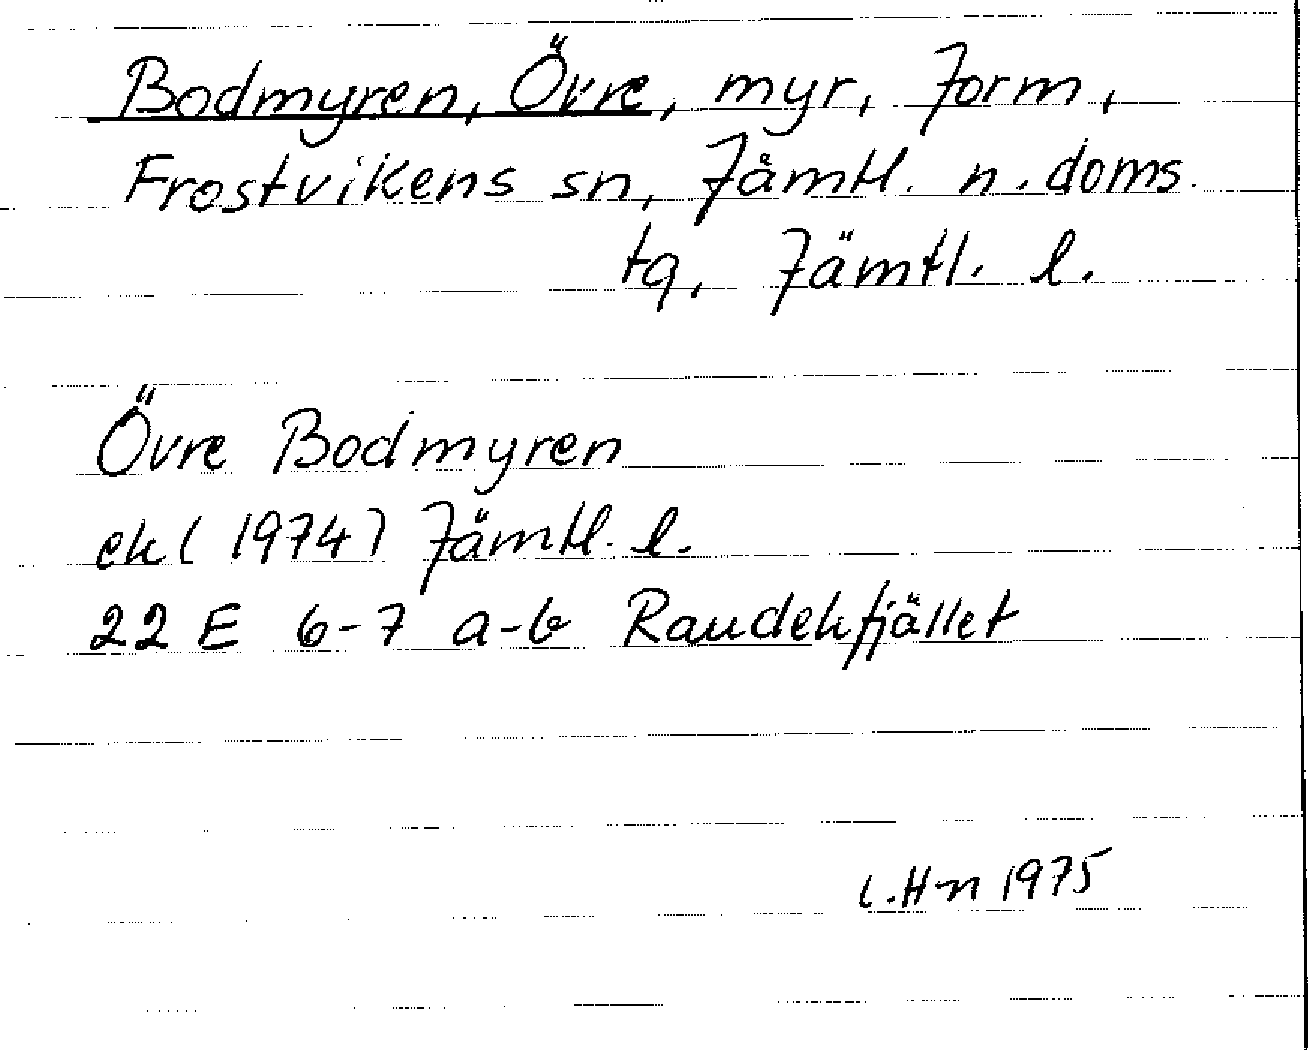 Bodmyren, Övre, myr, Jorm,
Frostvikens sn, Jämtl. n. doms.
tg, Jämtl. l.
Övre Bodmyren
ek (1974) Jämtl. l.
22 E 6-7 a-b Raudekfjället
L.Hn 1975